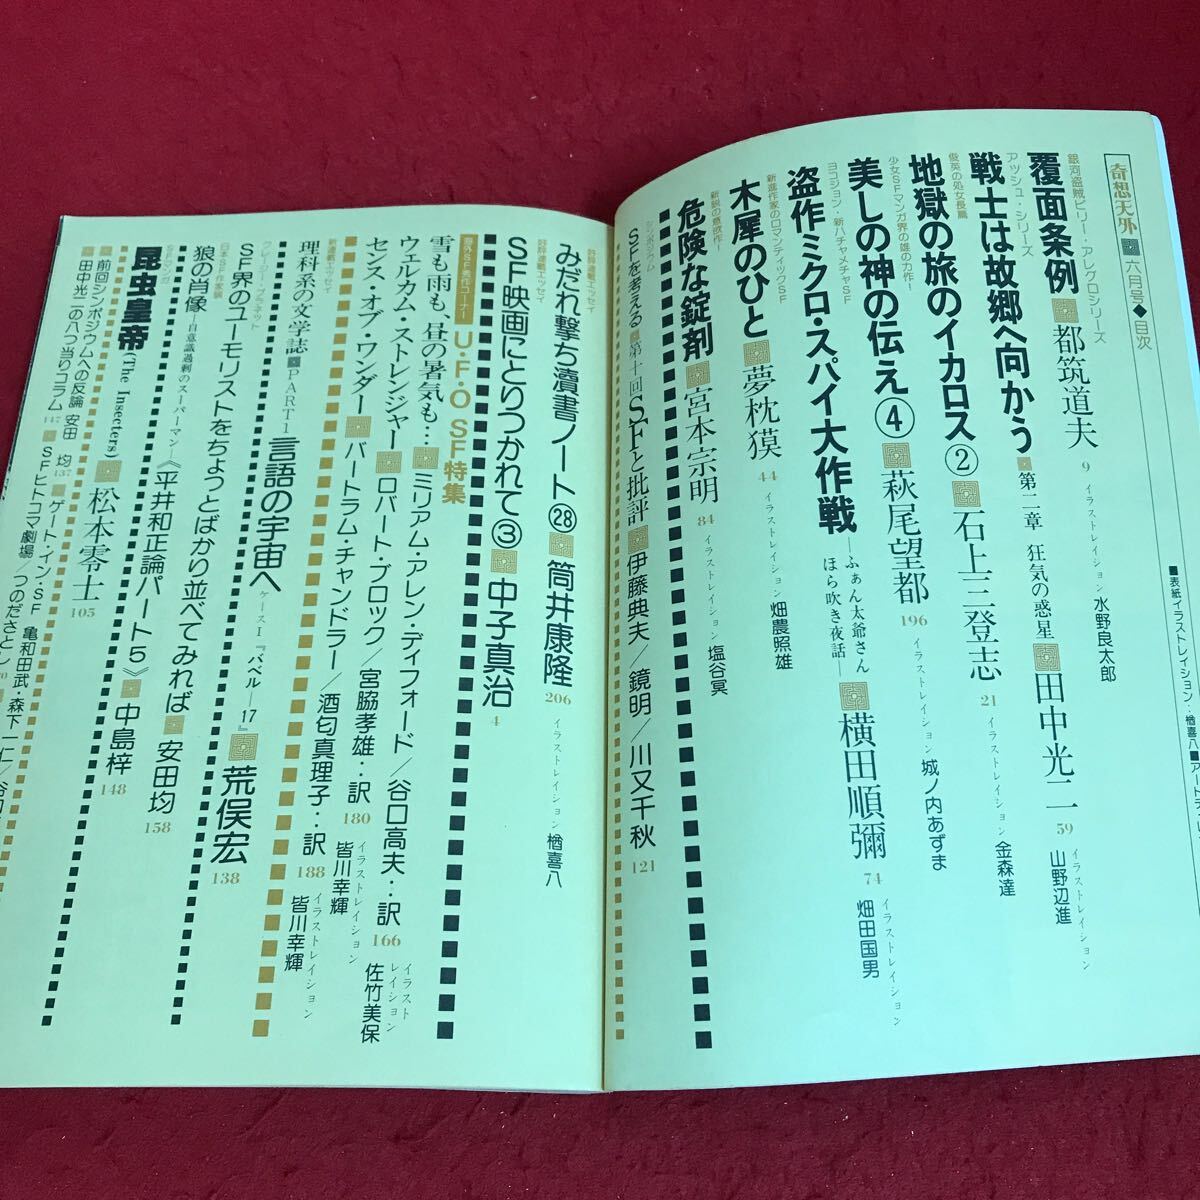 奇想天外 六月号◆目次
■表紙イラストレイション・楢喜八■
銀河盗賊ビリー・アレグロシリーズ
覆面条例 都筑道夫 9 イラストレイション 水野良太郎
アッシュ・シリーズ
戦士は故郷へ向かう 第二章 狂気の惑星 田中光二 59 イラストレイション 山野辺進
俊英の処女長篇
地獄の旅のイカロス② 石上三登志 21 イラストレイション 金森達
少女SFマンガ界の雄の力作!
美しの神の伝え④ 萩尾望都 196 イラストレイション 城ノ内あずま
ヨコジュン・新ハチャメチャSF
盗作ミクロ・スパイ大作戦 ―ふぁん太爺さんほら吹き夜話― 横田順彌 74 イラストレイション 畑田国男
新進作家のロマンティックSF
木犀のひと 夢枕獏 44 イラストレイション 畑農照雄
新鋭の意欲作!
危険な錠剤 宮本宗明 84 イラストレイション 塩谷冥
シンポジウム
SFを考える 第十回 SFと批評 伊藤典夫/鏡明/川又千秋 121
好評連載エッセイ
みだれ撃ち瀆書ノート㉘ 筒井康隆 206 イラストレイション 楢喜八
好評連載エッセイ
SF映画にとりつかれて③ 中子真治 4
海外SF秀作コーナー U・F・O SF特集
雪も雨も、昼の暑気も… ミリアム・アレン・ディフォード/谷口高夫‥訳 166 イラストレイション 佐竹美保
ウェルカム・ストレンジャー ロバート・ブロック/宮脇孝雄‥訳 180 イラストレイション 皆川幸輝
センス・オブ・ワンダー バートラム・チャンドラー/酒匂真理子‥訳 188 イラストレイション 皆川幸輝
新連載エッセイ
理科系の文学誌 PART1 言語の宇宙へ ケースI『バベル―17』 荒俣宏 138
クレージー・プラネット
SF界のユーモリストをちょっとばかり並べてみれば 安田均 158
日本SF作家論
狼の肖像 ―自意識過剰のスーパーマン―《平井和正論パート5》 中島梓 148
SFマンガ
昆虫皇帝 (The Insecters) 松本零士 105
前回シンポジウムへの反論 安田 均 137 ゲート・イン・SF 亀和田武・森下一仁/
田中光二の八つ当りコラム 147 SFヒトコマ劇場/つのださとし